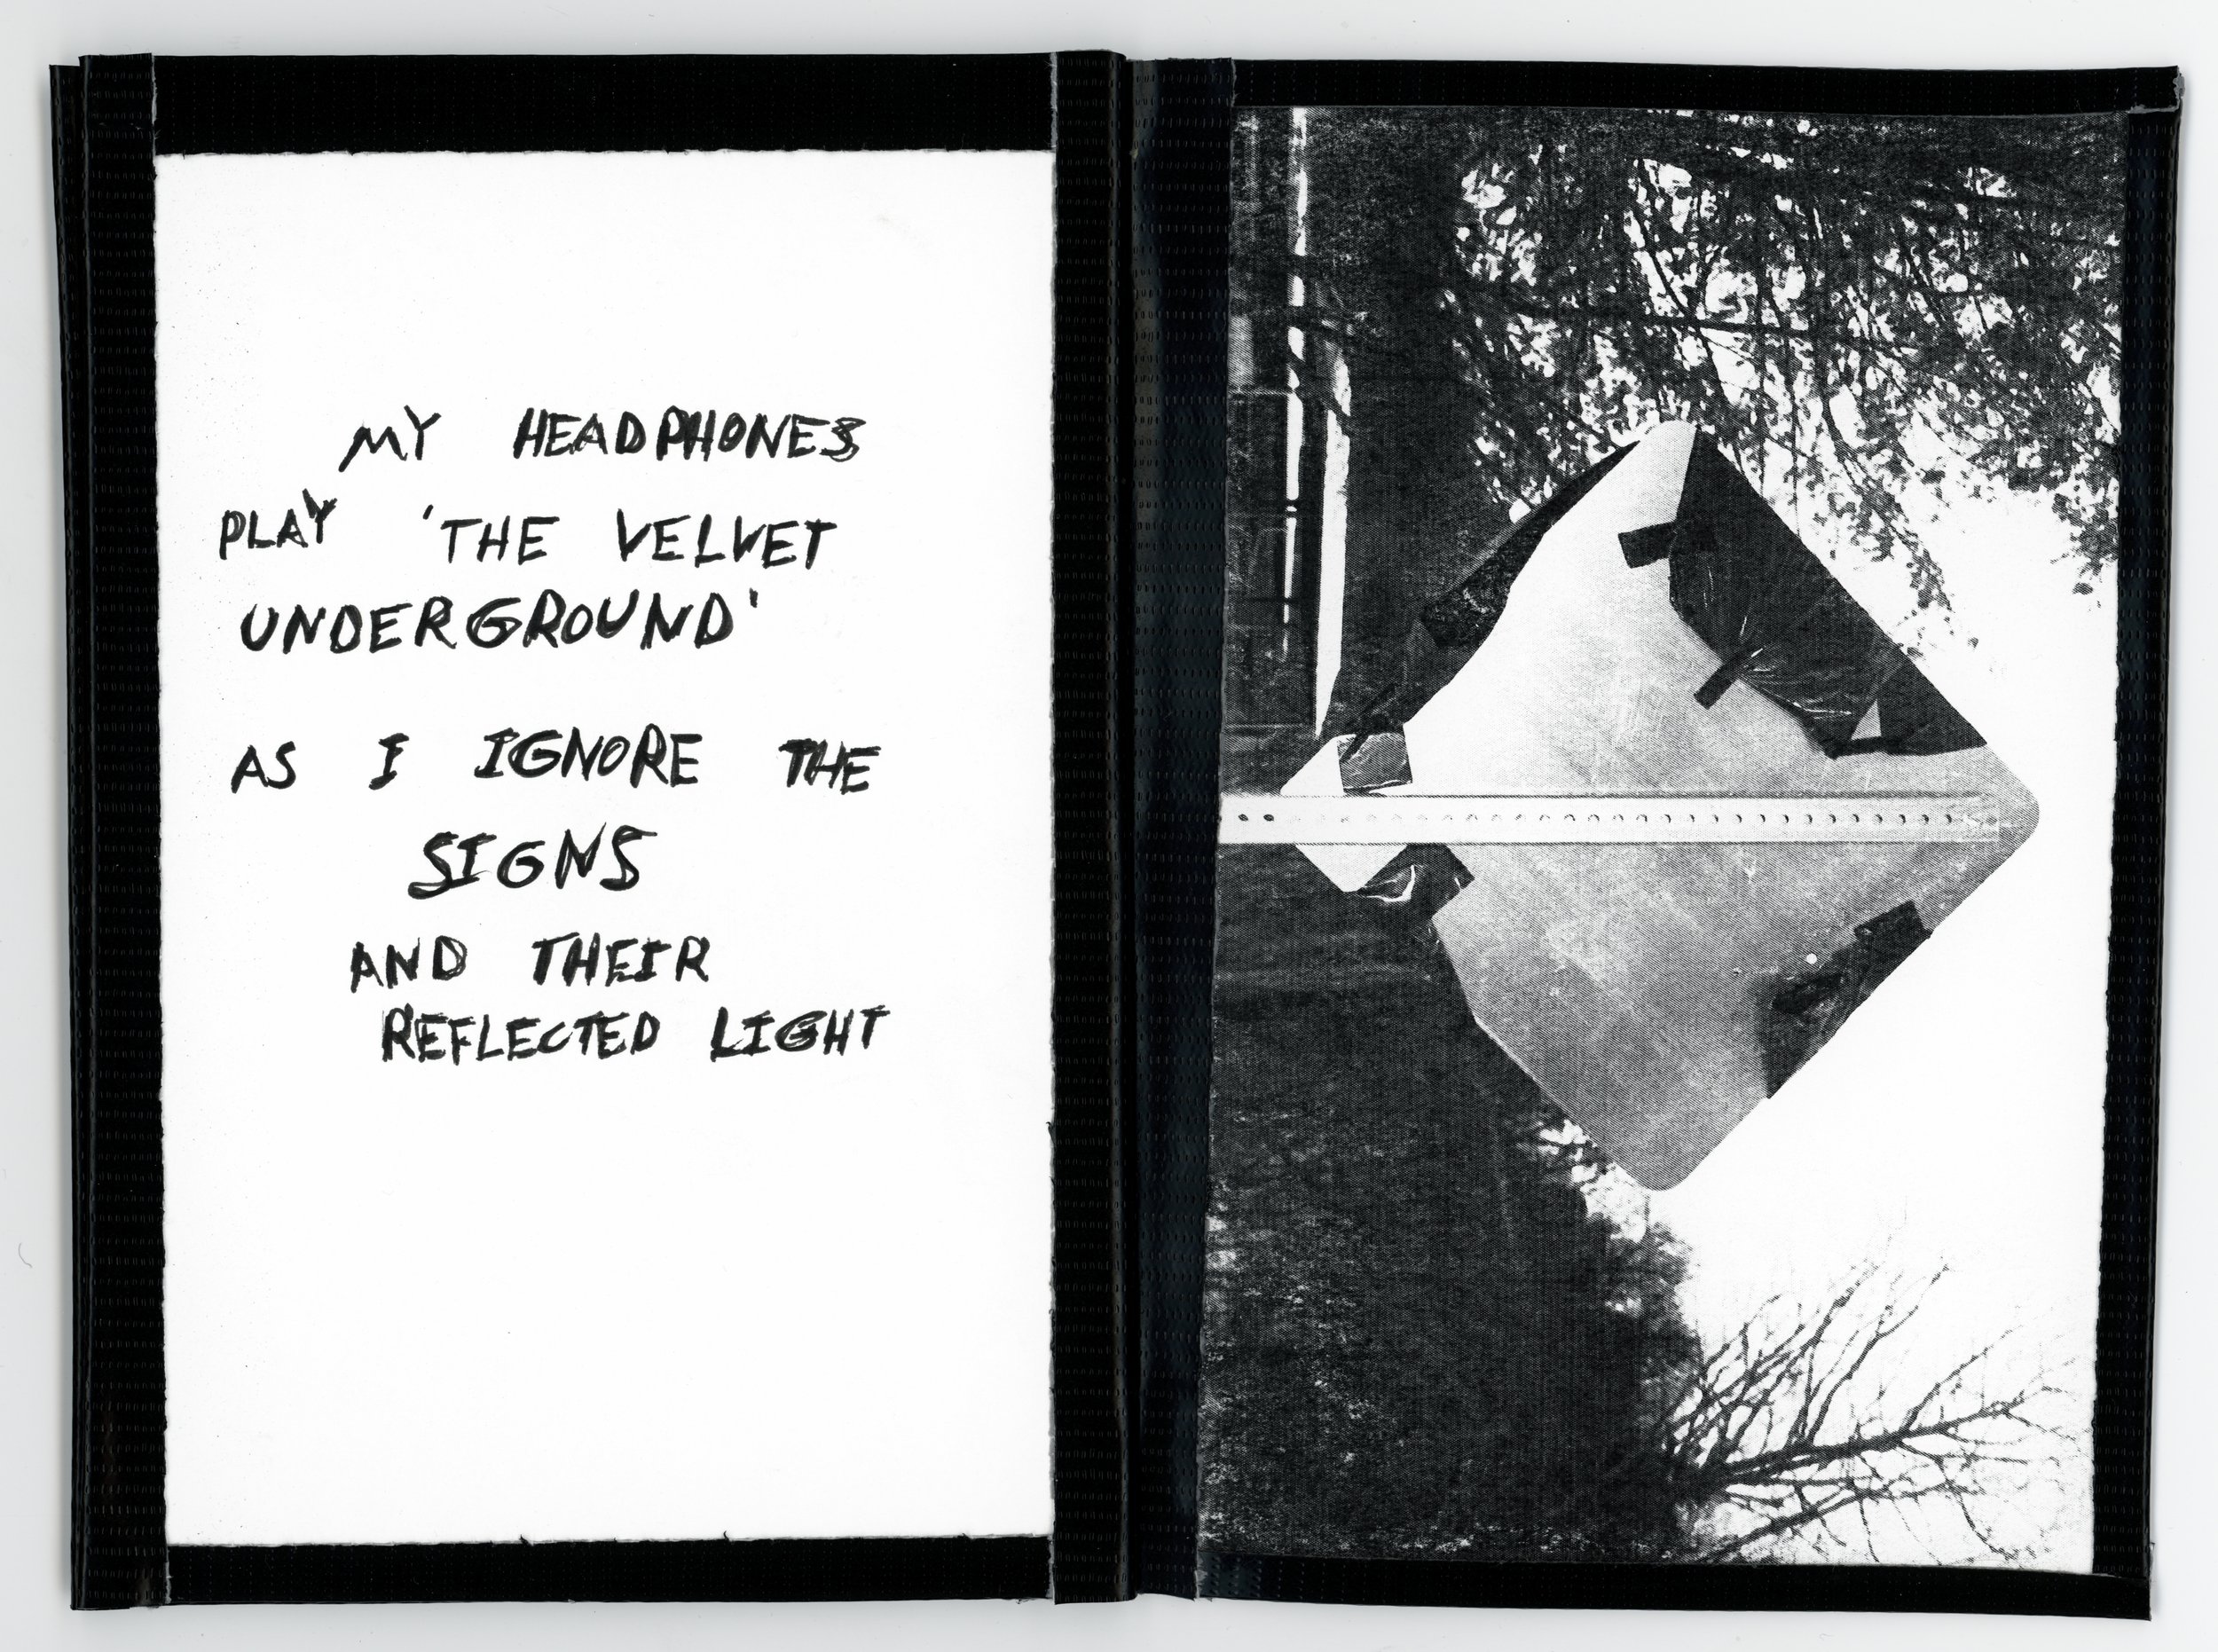 MY HEADPHONES
PLAY 'THE VELVET
UNDERGROUND'
AS I IGNORE THE
SIGNS
AND THEIR
REFLECTED LIGHT